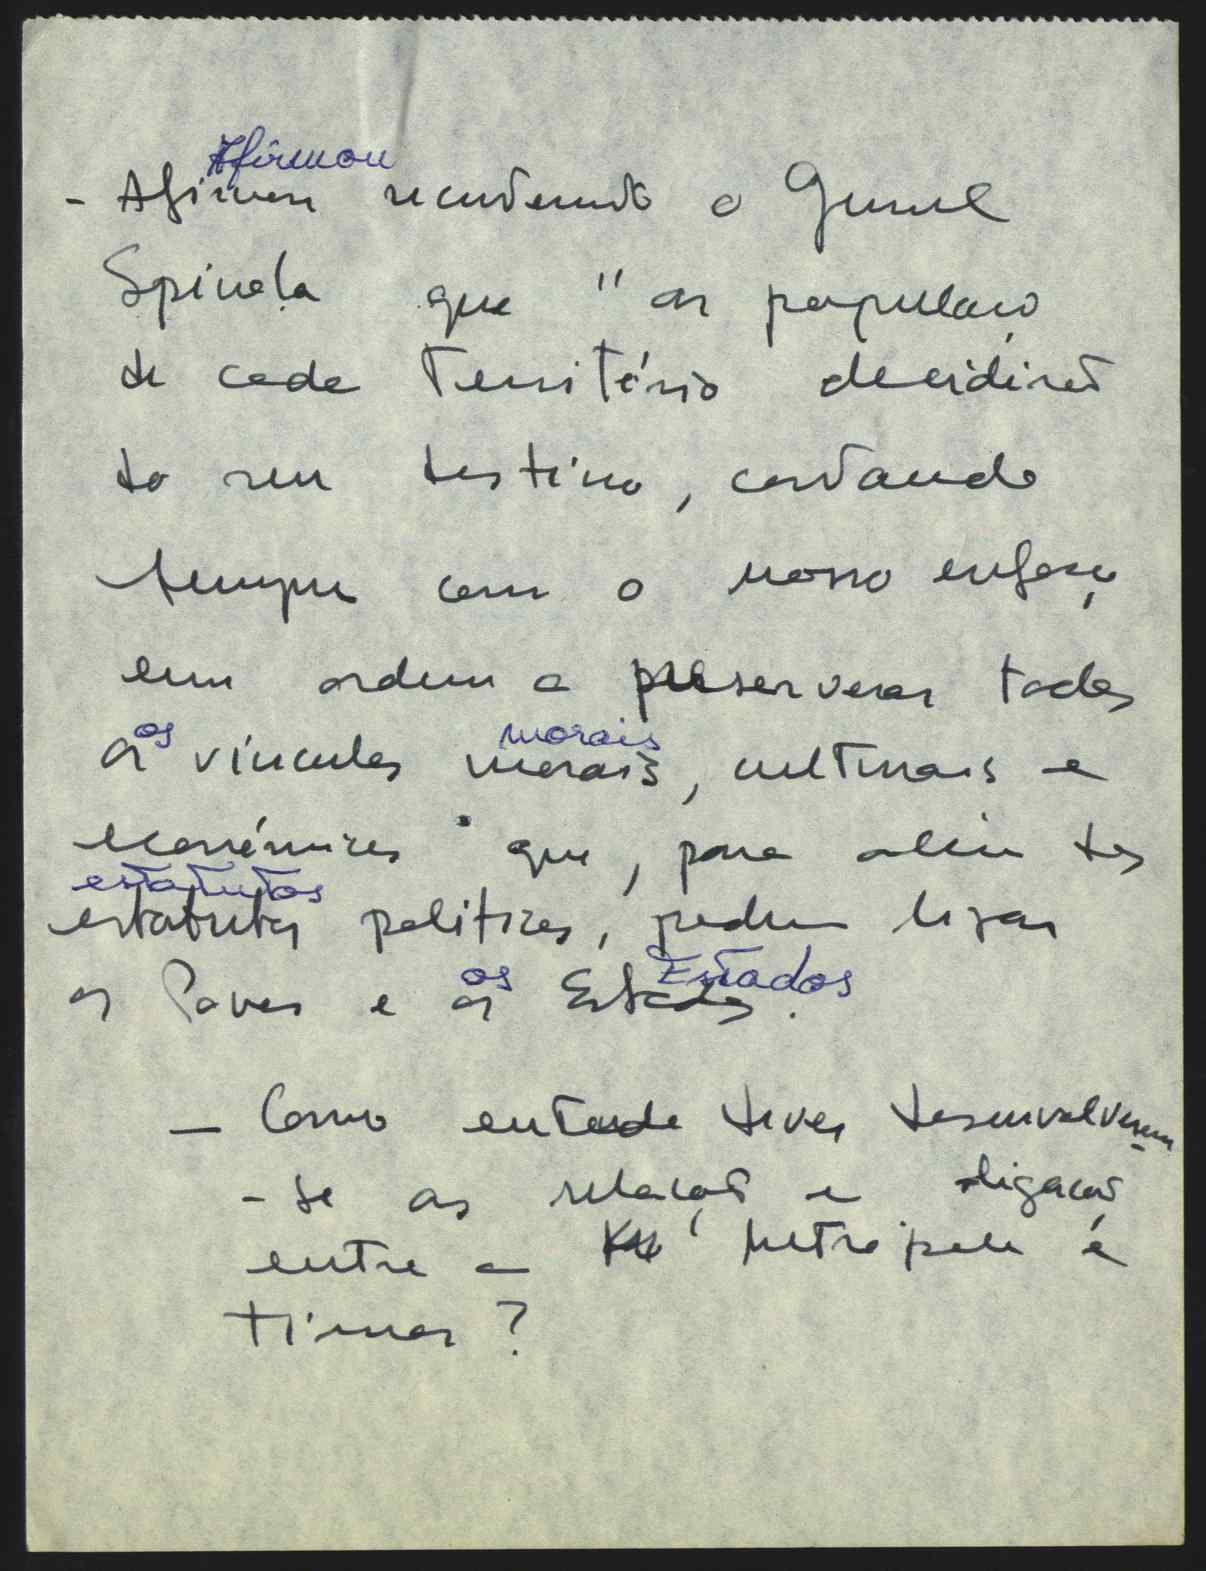 Afirmou
- Afirmou recentemente o General
Spínola que "as populações
de cada Território decidirão
do seu destino, contando
sempre com o nosso esforço
em ordem a preservar todos
os os vínculos morais morais, culturais e
económicos" que, para além dos
estatutos
estatutos políticos, podem ligar
os Povos e os os Estados Estados.
- Como entende dever desenvolverem
-se as relações e ligações
entre a Metrópole e
Timor?